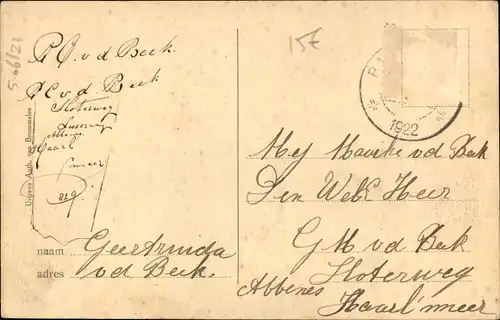 15€
5-66/21
P.C. v d Beek.
P C v d Beek
Sloterweg
Haarl
meer
829
Uitgave Auth. van Bemmelen
naam Geertruida
adres v d Beek.
1922
Mej Marike v d Beek
Den WelE Heer
G M v d Beek
Sloterweg
Abbenes
Haarl'meer